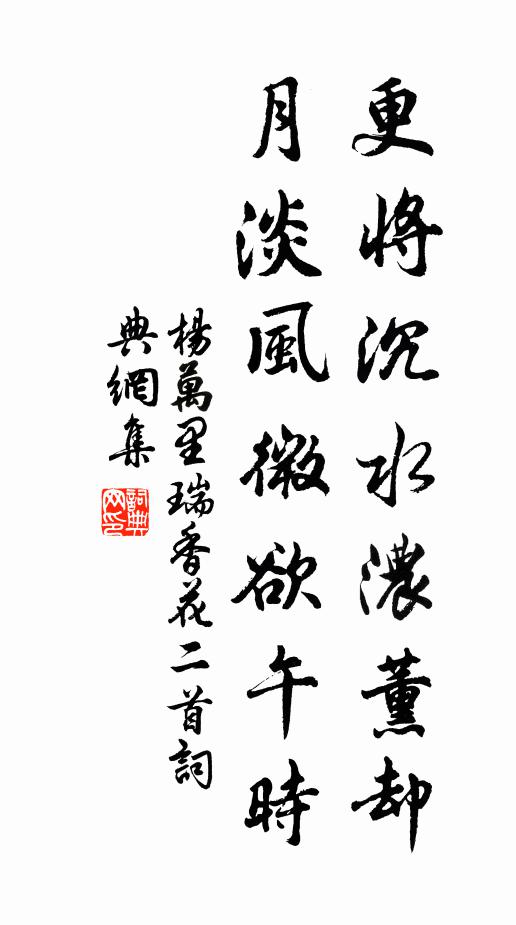 更將沉水濃薰却
月淡風微欲午時
楊萬里瑞香花二首詞
典網集
詞典网印